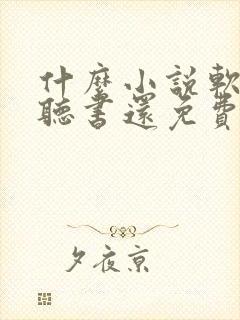 什麼小說軟
聽書還免費
夕夜京